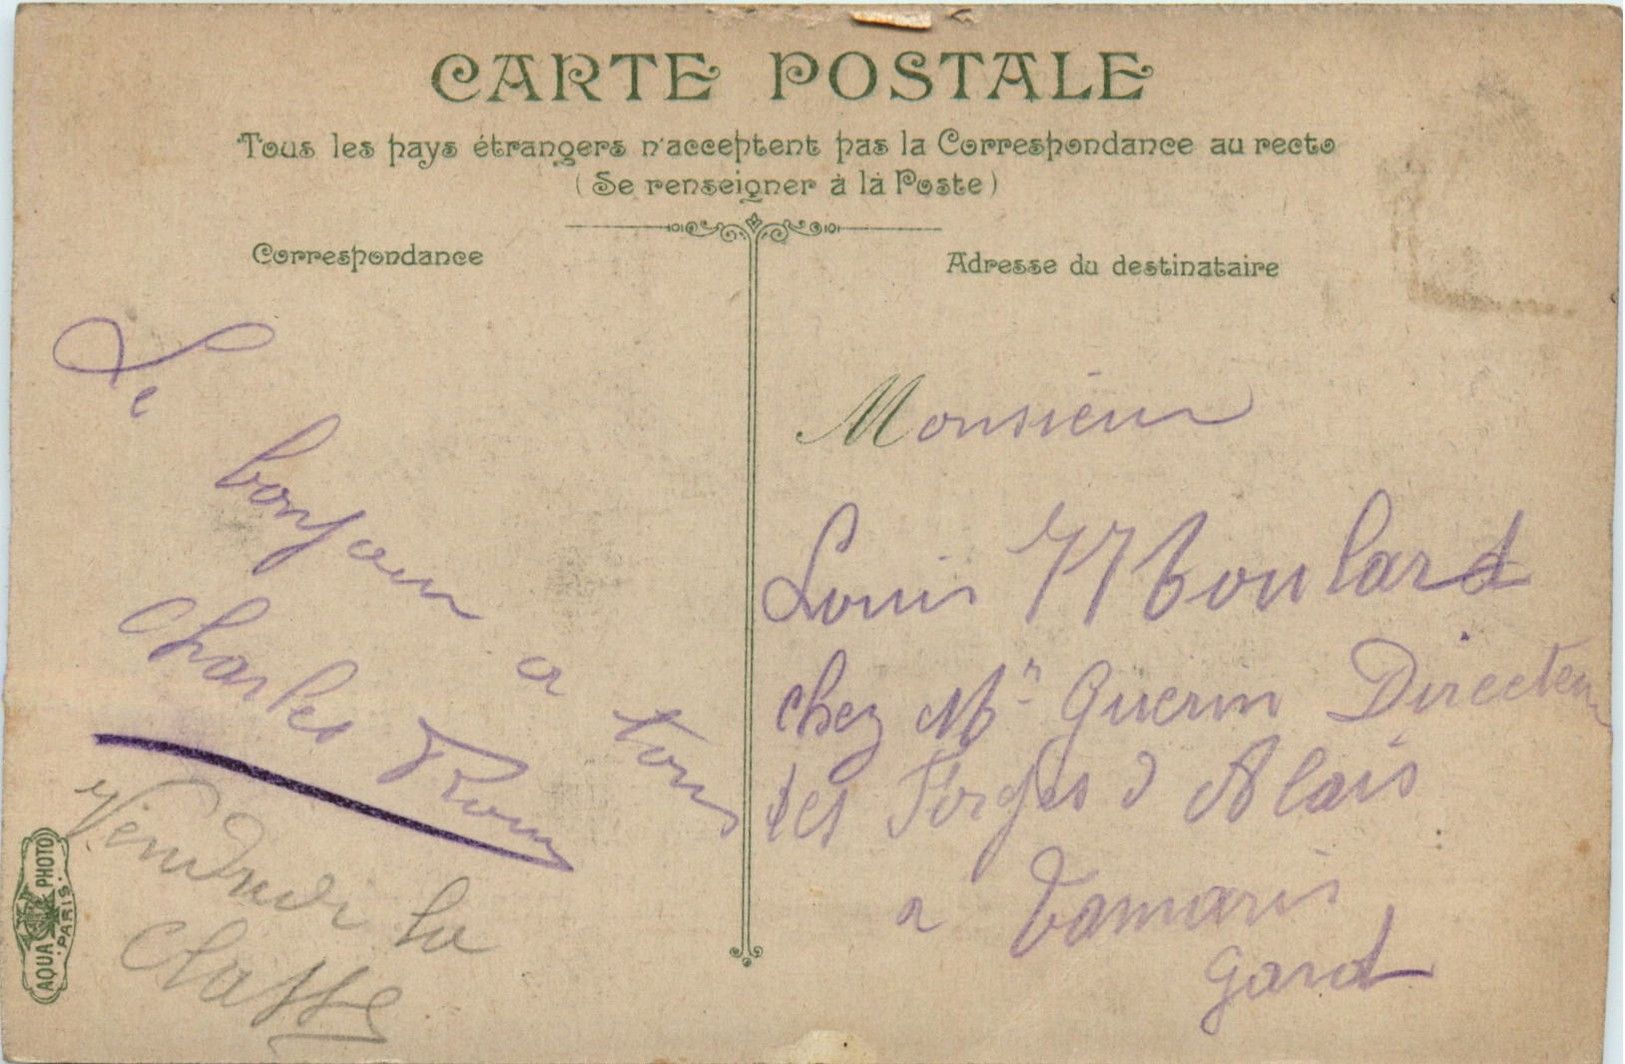 CARTE POSTALE
Tous les pays étrangers n'acceptent pas la Correspondance au recto
(Se renseigner à la Poste)
Correspondance
Adresse du destinataire
Le
bonjour a tous
Charles
Vendredi la
Classe
AQUA PHOTO
PARIS.
Monsieur
Louis Moulard
chez Mr Guerin Directeur
des Forges d Alais
a Tamaris
Gard